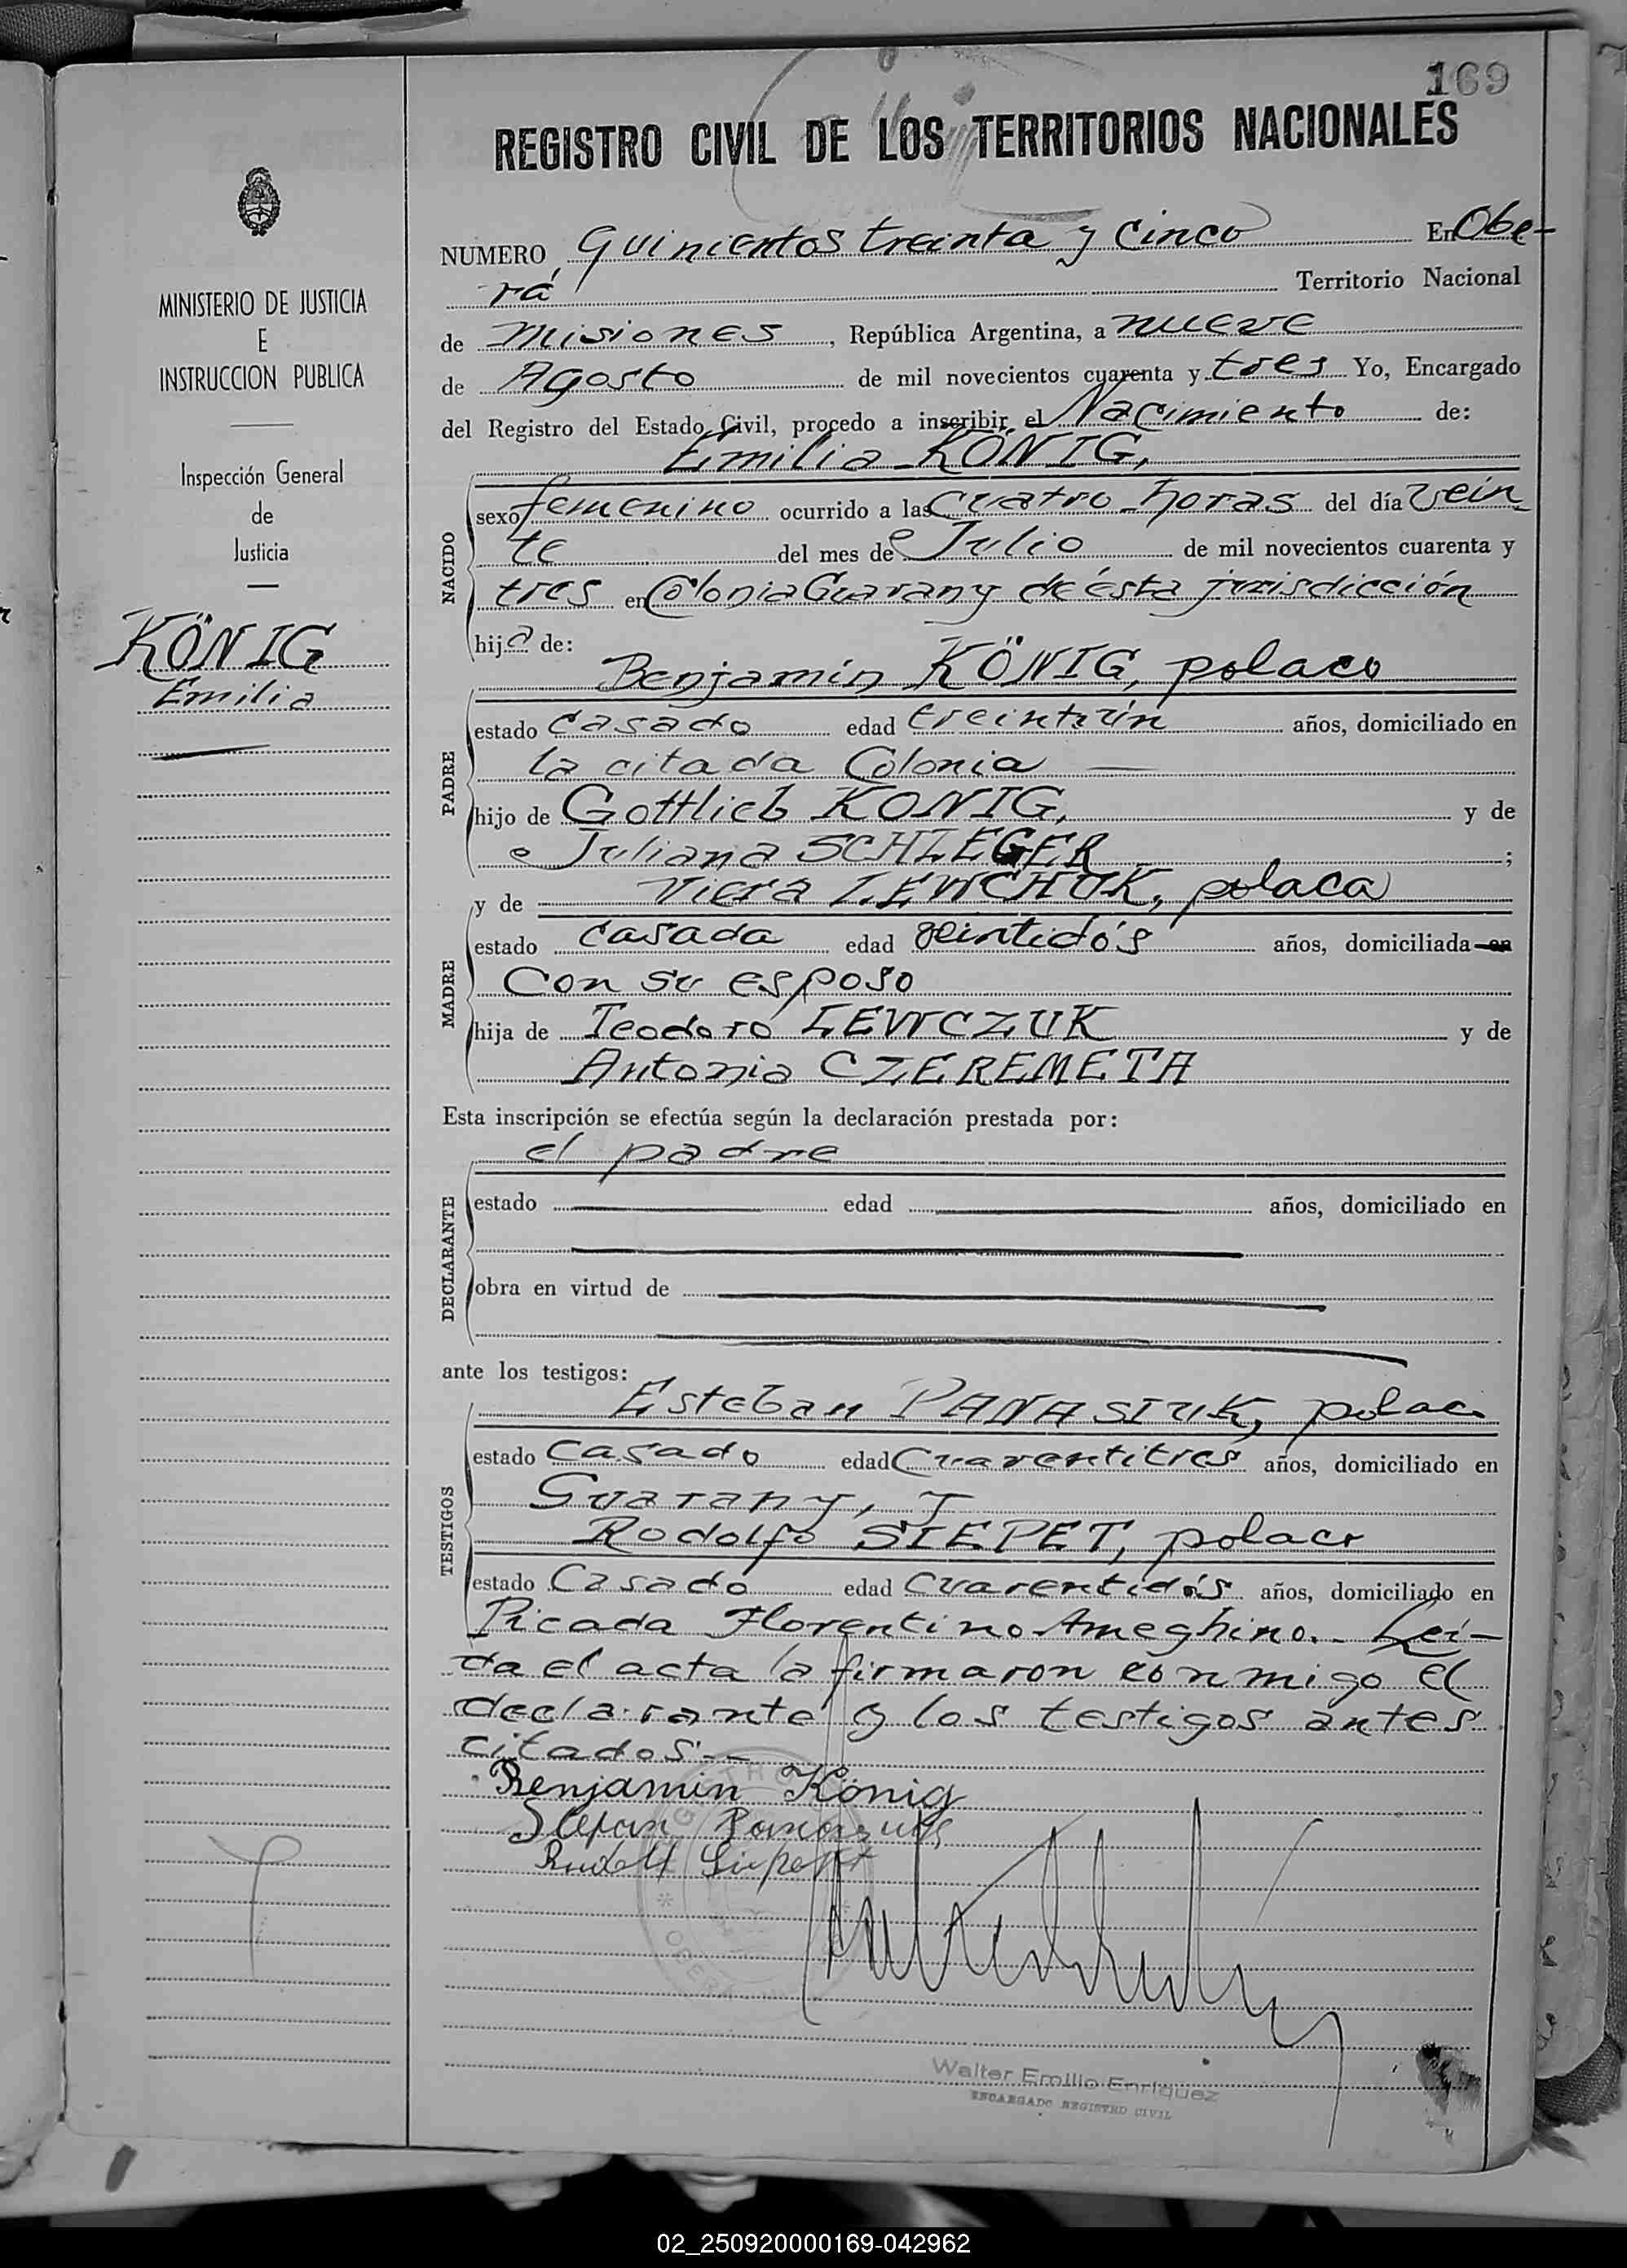 169
REGISTRO CIVIL DE LOS TERRITORIOS NACIONALES
MINISTERIO DE JUSTICIA
E
INSTRUCCION PUBLICA
Inspección General
de
Justicia
KÖNIG
Emilia
NUMERO Quinientos treinta y cinco En Obe-
rá Territorio Nacional
de Misiones, República Argentina, a nueve
de Agosto de mil novecientos cuarenta y tres Yo, Encargado
del Registro del Estado Civil, procedo a inscribir el Nacimiento de:
Emilia KÖNIG,
NACIDO
sexo femenino ocurrido a las cuatro horas del día vein
te del mes de Julio de mil novecientos cuarenta y
tres en Colonia Guarany de ésta jurisdicción
hija de:
Benjamín KÖNIG, polaco
PADRE
estado casado edad treintiún años, domiciliado en
la citada Colonia
hijo de Gottlieb KONIG, y de
Juliana SCHLEGER;
y de Viera LEWCHUK, polaca
MADRE
estado casada edad veintidós años, domiciliada en
con su esposo
hija de Teodoro LEWCZUK y de
Antonia CZEREMETA
Esta inscripción se efectúa según la declaración prestada por:
el padre
DECLARANTE
estado edad años, domiciliado en
obra en virtud de
ante los testigos:
Esteban PANASIUK, polaco
TESTIGOS
estado casado edad cuarentitres años, domiciliado en
Guarany, y
Rodolfo SIEPET, polaco
estado casado edad cuarentidós años, domiciliado en
Picada Florentino Ameghino.- Leí-
da el acta la firmaron conmigo el
declarante y los testigos antes
citados.-
Benjamin König
OBERA
Walter Emilio Enriquez
ENCARGADO REGISTRO CIVIL
02_250920000169-042962